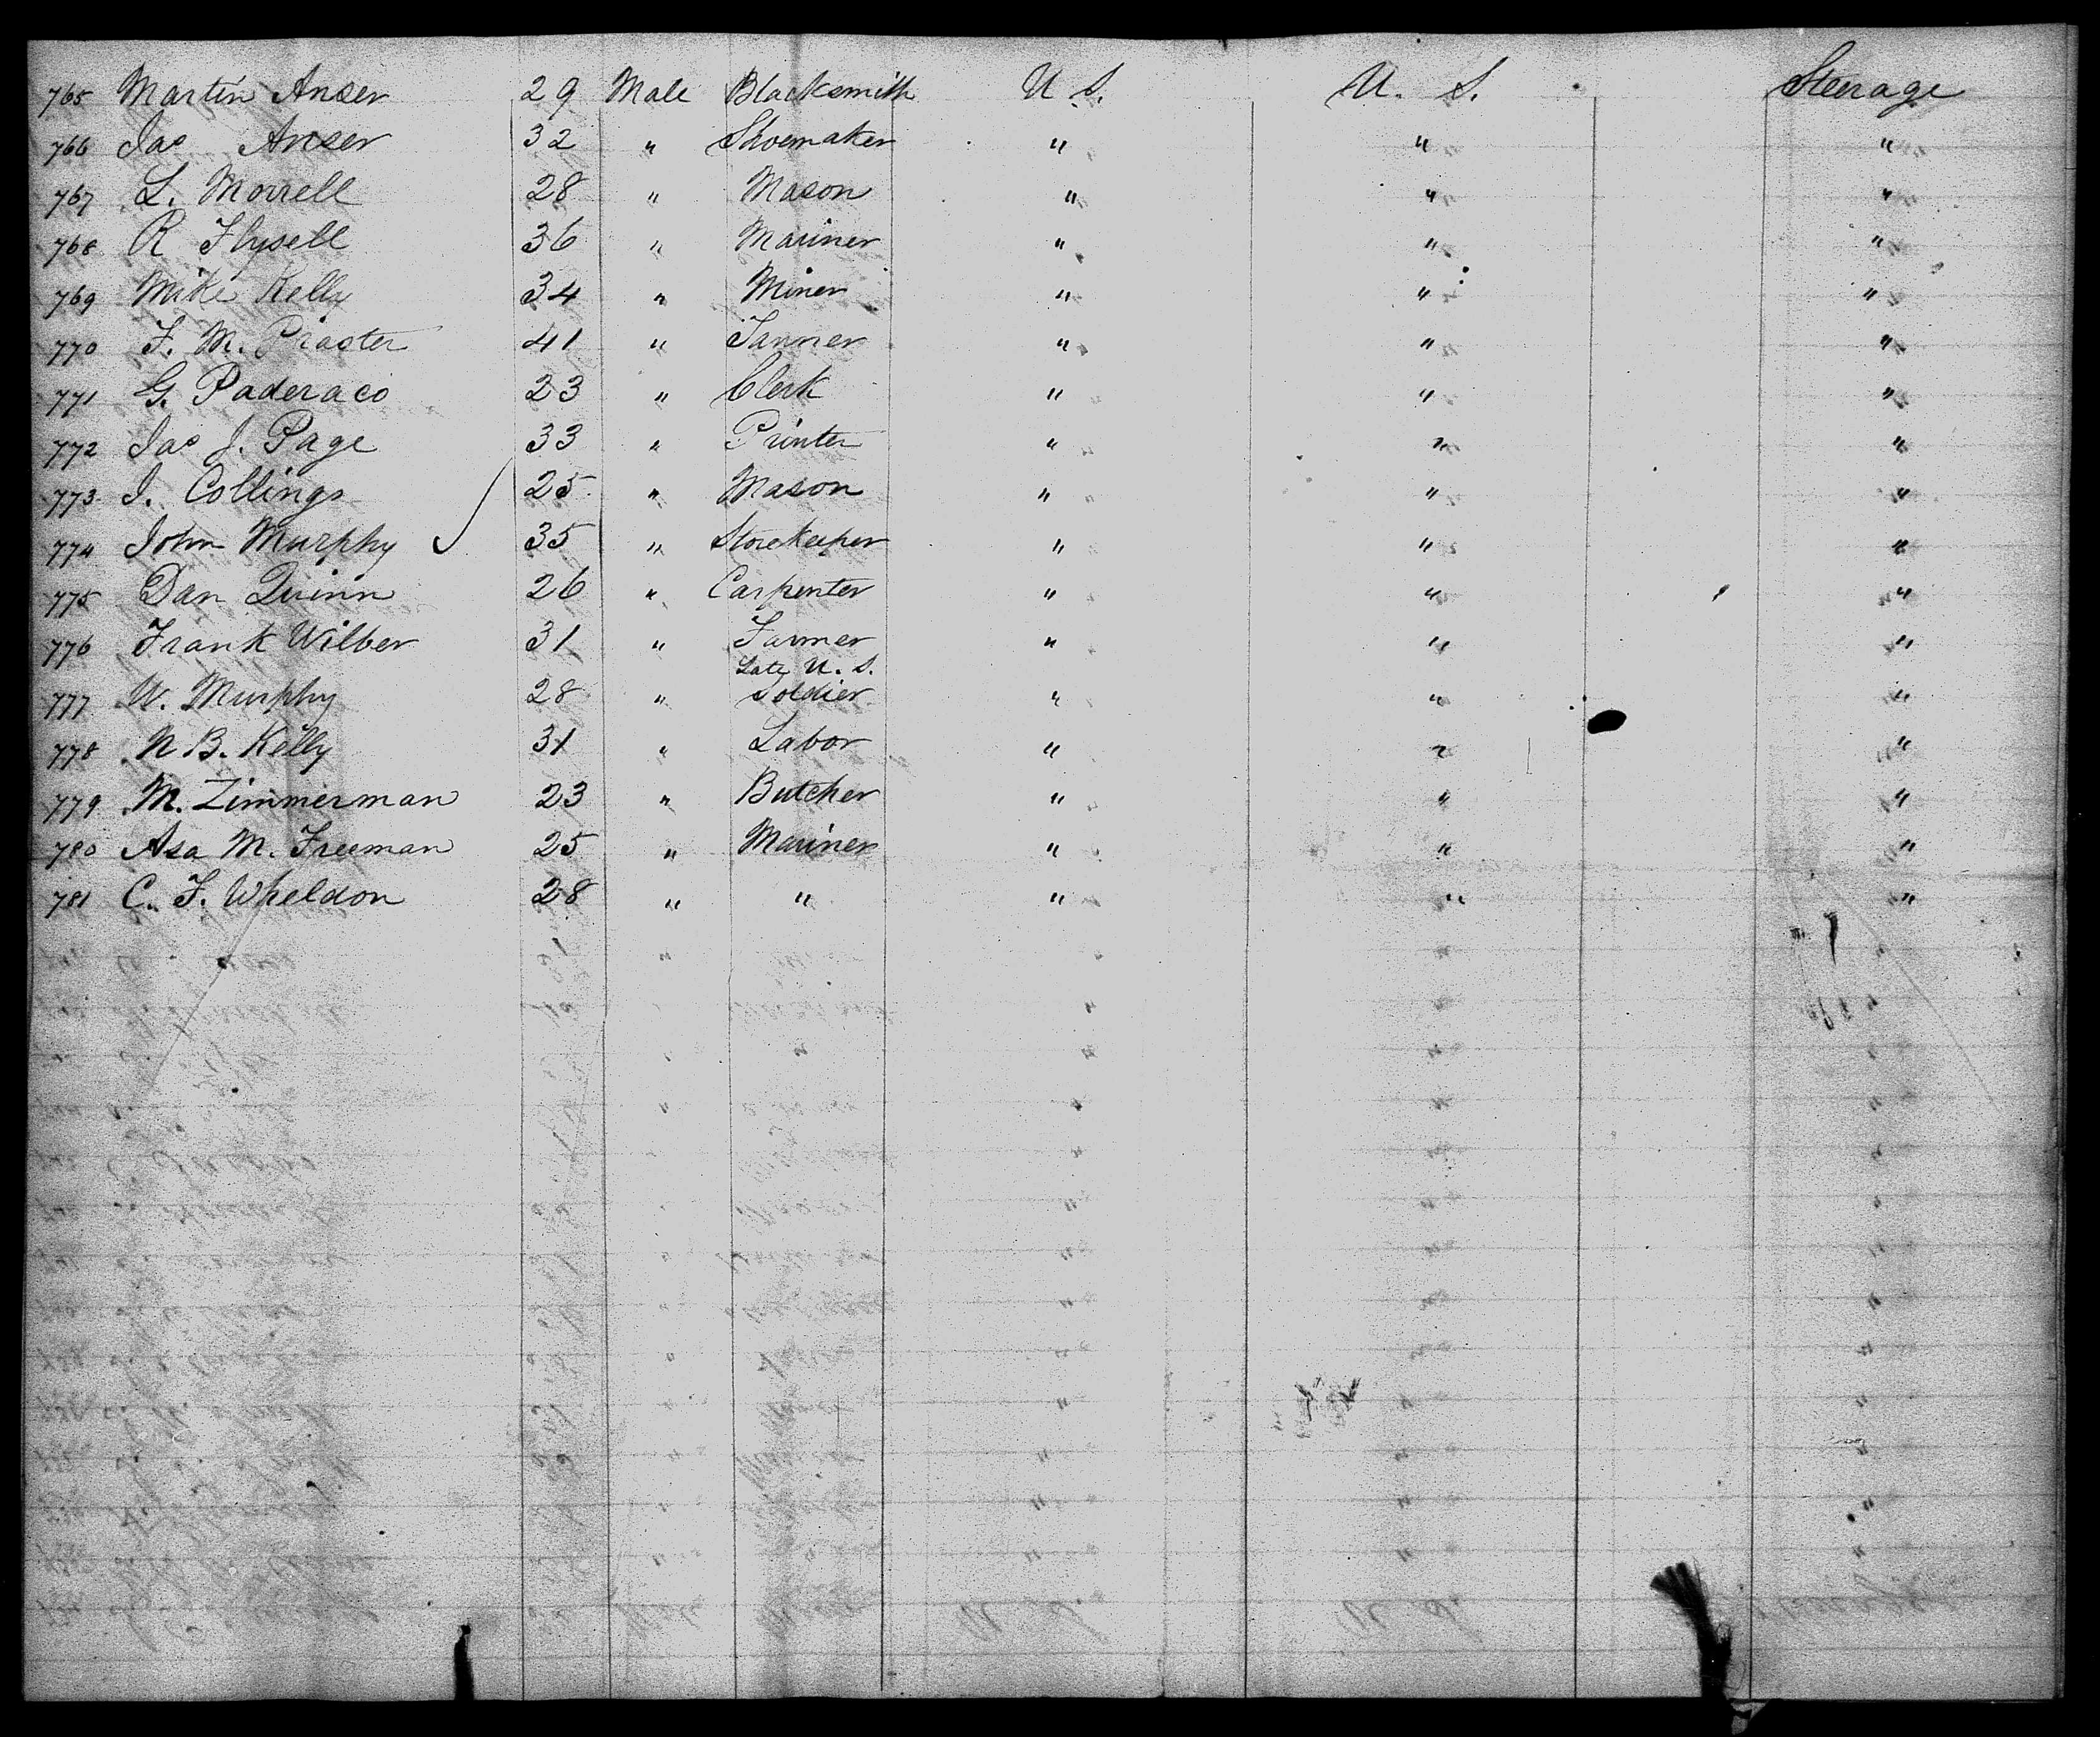 765 Martin Anser 29 Male Blacksmith U S. U. S. Steerage
766 Jas Anser 32 " Shoemaker " " "
767 L. Morrell 28 " Mason " " "
768 R 36 " Mariner " " "
769 Mike Kelly 34 " Miner " " "
770 F. M. 41 " " " "
771 G. Paderaco 23 " Clerk " " "
772 Jas J. Page 33 " Printer " " "
773 J. Collings 25 " Mason " " "
774 John Murphy 35 " Storekeeper " " "
775 Dan Quinn 26 " Carpenter " " "
776 Frank Wilber 31 " Farmer " " "
Late U. S.
777 W. Murphy 28 " Soldier " " "
778 N B. Kelly 31 " Labor " " "
779 M. Zimmerman 23 " Butcher " " "
780 Asa M. Freeman 25 " Mariner " " "
781 C. F. Wheldon 28 " " " " "